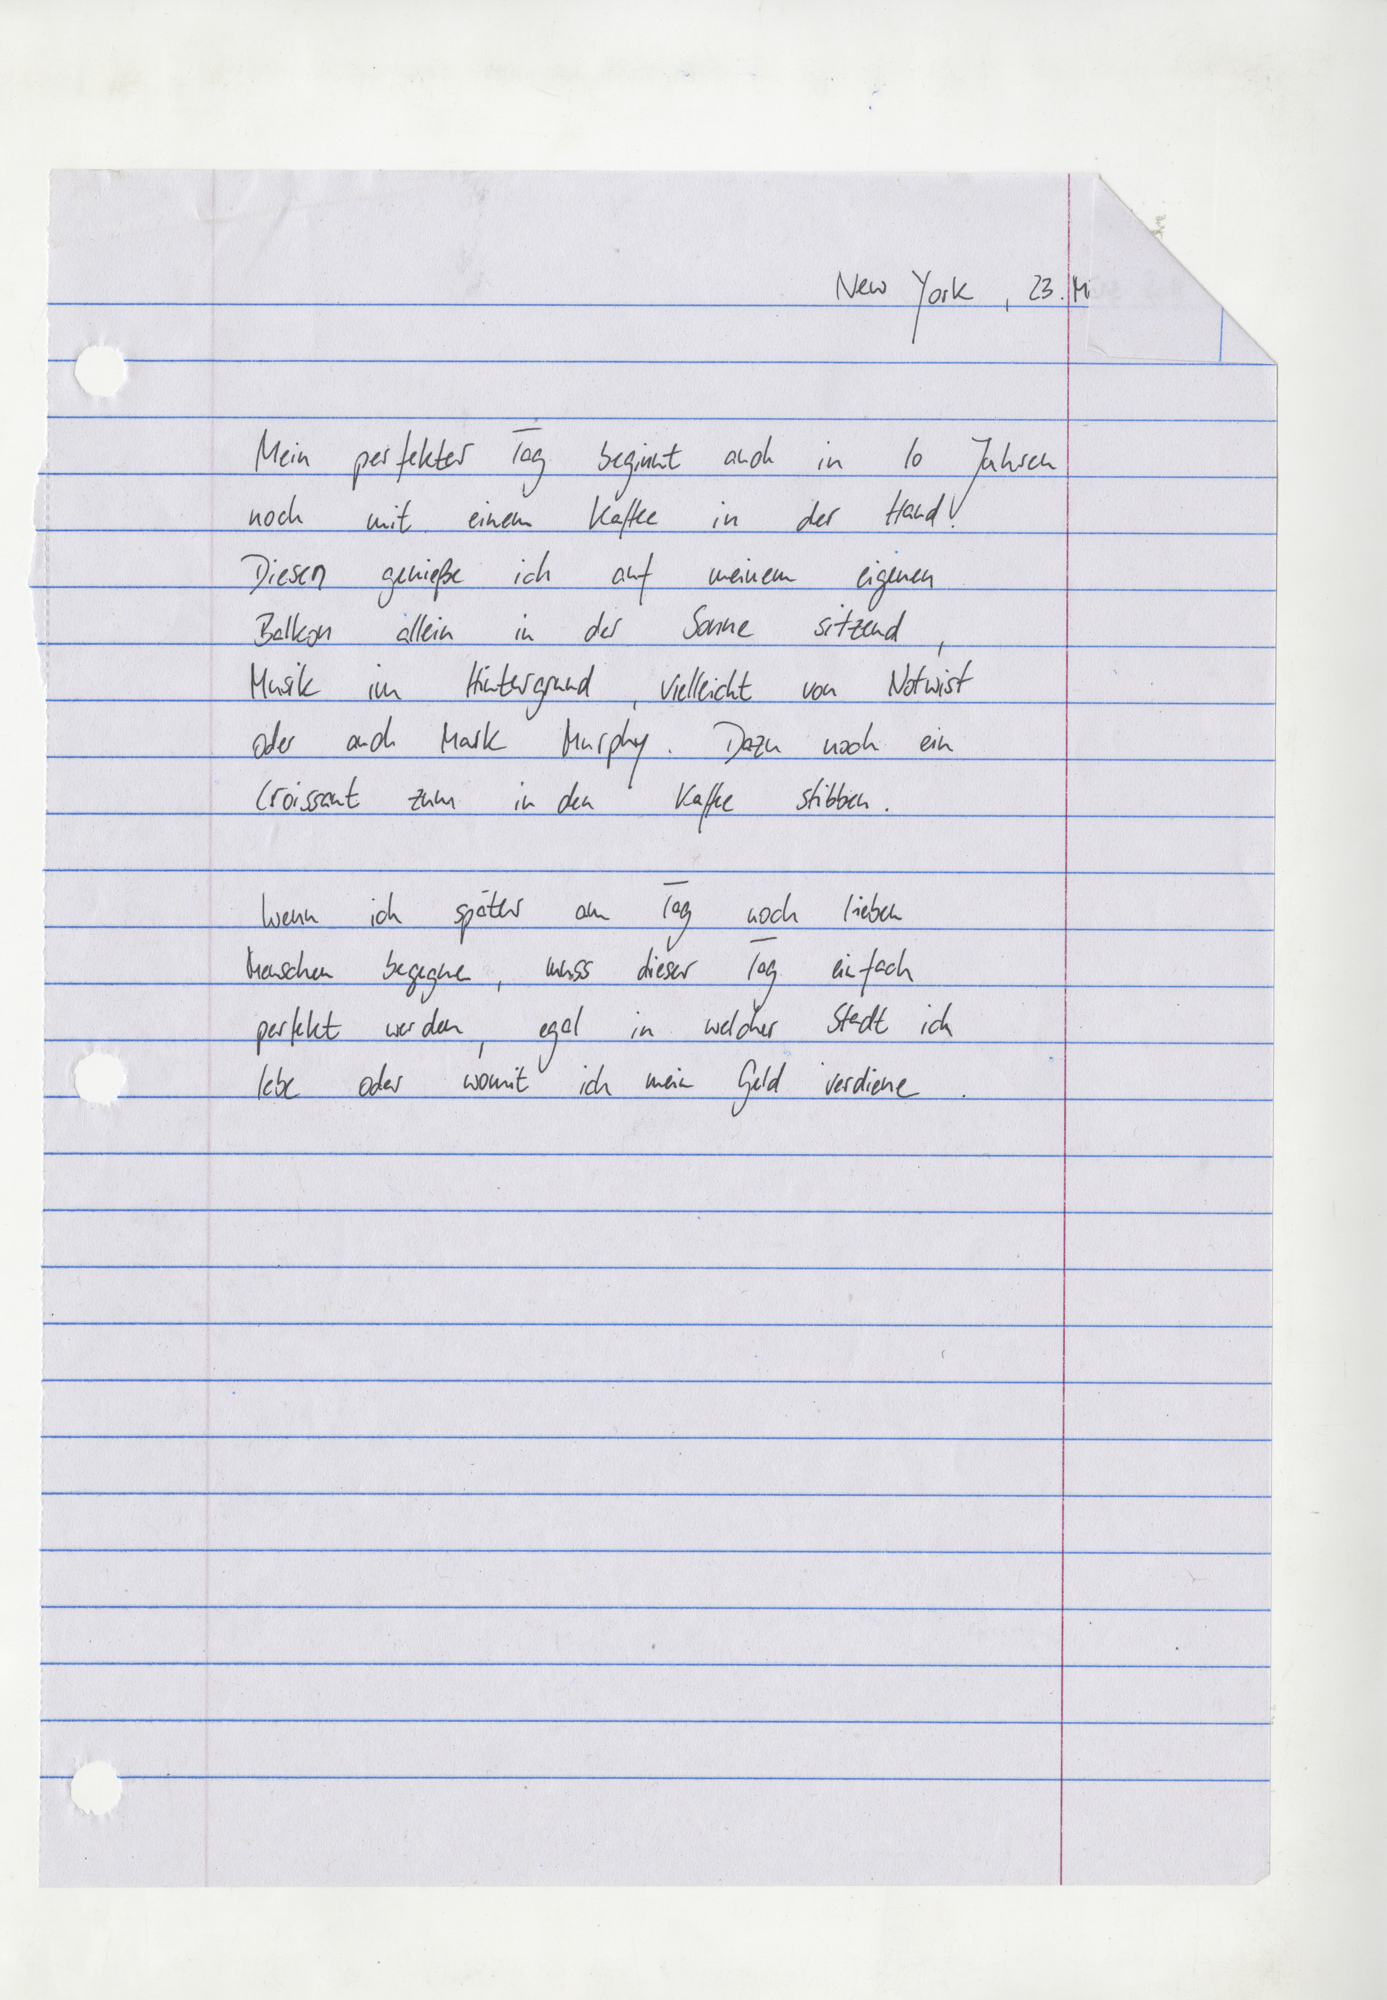 New York, 23. M
Mein perfekter Tag beginnt auch in 10 Jahren
noch mit einem Kaffee in der Hand!
Diesen genieße ich auf meinem eigenen
Balkon allein in der Sonne sitzend,
Musik im Hintergrund, vielleicht von Notwist
oder auch Mark Murphy. Dazu noch ein
Croissant zum in den Kaffee stibben.
Wenn ich später am Tag noch lieben
Menschen begegne, muss dieser Tag einfach
perfekt werden, egal in welcher Stadt ich
lebe oder womit ich mein Geld verdiene.